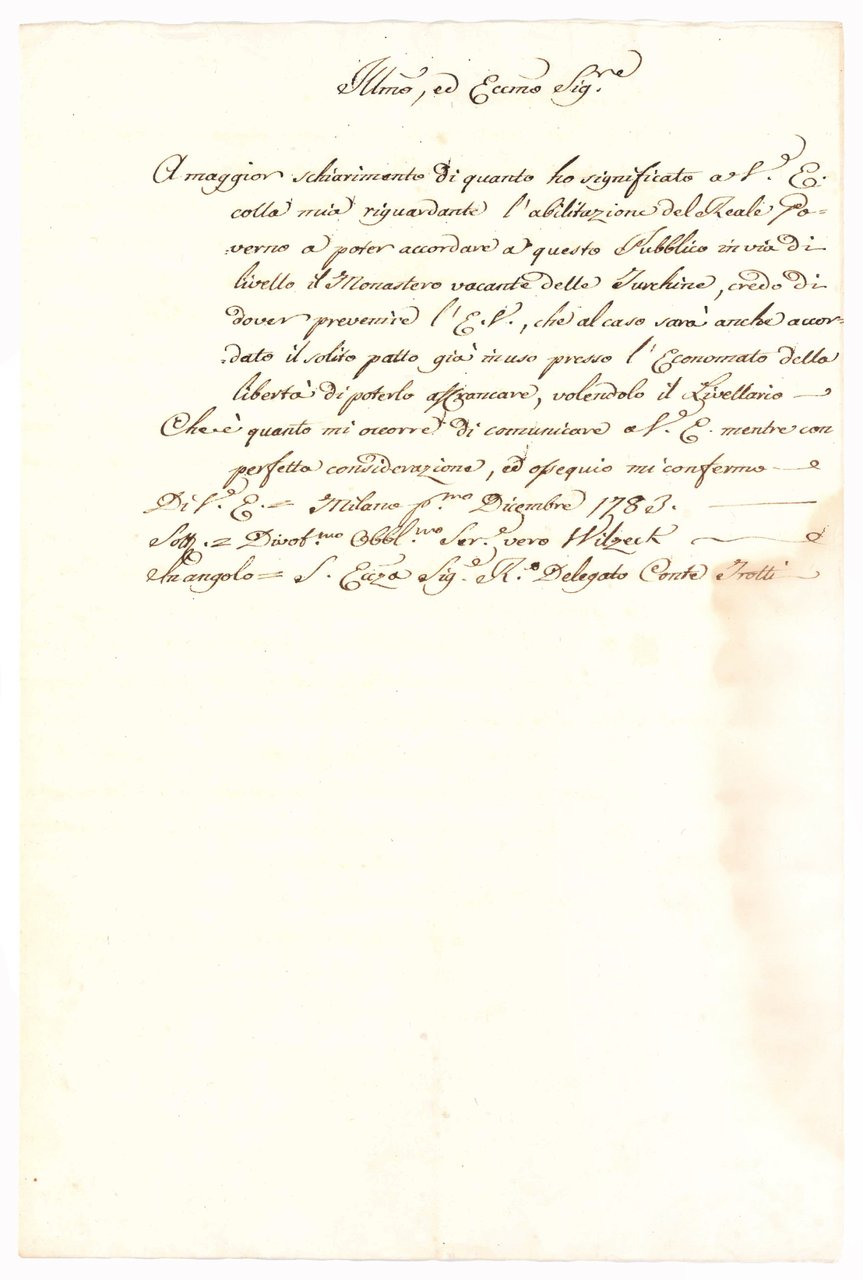 Illmo, ed Eccmo Sig.re
A maggior schiarimento di quanto ho significato a V.a E.
colla mia riguardante l'abilitazione del Reale Go=
verno a poter accordare a questo Pubblico in via di
livello il Monastero vacante delle Turchine, credo di
dover prevenire l'E.V., che al caso sarà anche accor=
=dato il solito patto già in uso presso l'Economato della
libertà di poterlo affrancare, volendolo il Livellario —
Che è quanto mi occorre di comunicare a V.a E. mentre con
perfetta considerazione, ed ossequio mi confermo —
Di V.a E. = Milano p.mo Dicembre 1783. —
Sott. = Divot.mo Obbl.mo Ser.e vero Wilzeck —
In angolo = S. Ecc.za Sig.e R.o Delegato Conte Trotti —